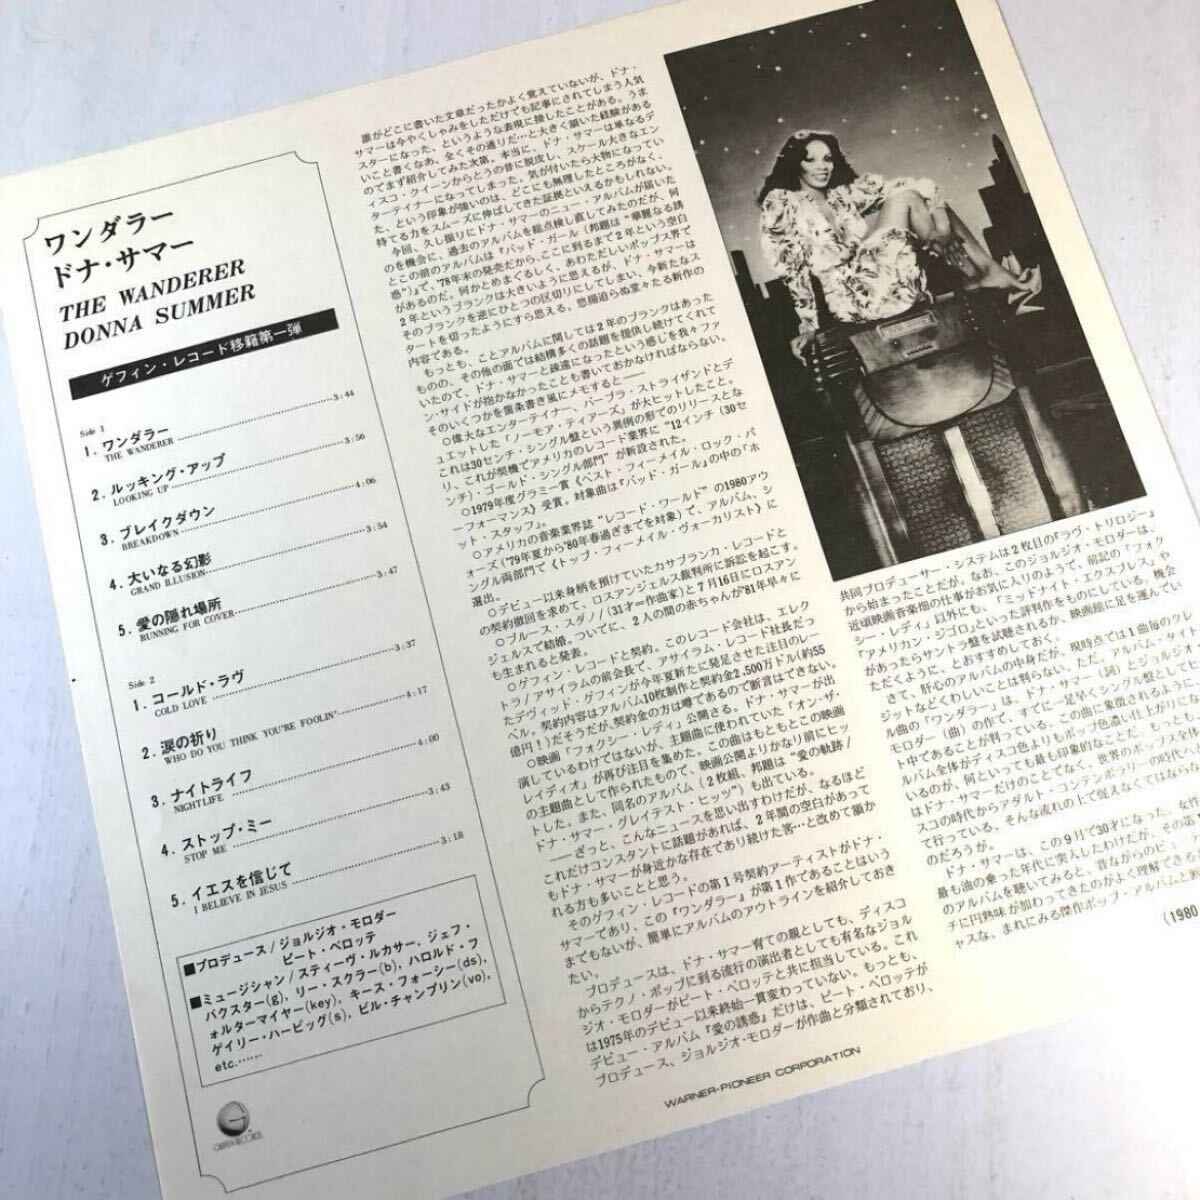 ワンダラー
ドナ・サマー
THE WANDERER
DONNA SUMMER
ゲフィン・レコード移籍第一弾
Side 1
1. ワンダラー 3:44
THE WANDERER
2. ルッキング・アップ 3:56
LOOKING UP
3. ブレイクダウン 4:06
BREAKDOWN
4. 大いなる幻影 3:54
GRAND ILLUSION
5. 愛の隠れ場所 3:47
RUNNING FOR COVER
Side 2
1. コールド・ラヴ 3:37
COLD LOVE
2. 涙の祈り 4:17
WHO DO YOU THINK YOU'RE FOOLIN'
3. ナイトライフ 4:00
NIGHTLIFE
4. ストップ・ミー 3:43
STOP ME
5. イエスを信じて 3:18
I BELIEVE IN JESUS
■プロデュース/ジョルジオ・モロダー
ピート・ベロッテ
■ミュージシャン/スティーヴ・ルカサー, ジェフ・
バクスター(g), リー・スクラー(b), ハロルド・フ
ォルターマイヤー(key), キース・フォーシー(ds),
ゲイリー・ハービッグ(s), ビル・チャンプリン(vo),
etc.……
GEFFEN RECORDS
誰がどこに書いた文章だったかよく覚えていないが、ドナ・
サマーは今やくしゃみをしただけでも記事にされてしまう人気
スターになった、というような表現に接したことがある。うま
いこと書くなあ、全くその通りだ…と大きく頷いた経験がある
のでまず紹介してみた次第。本当に、ドナ・サマーは単なるデ
ィスコ・クイーンからとうの昔に脱皮し、スケール大きなエン
ターテイナーになってしまった。気が付いたら大物になってい
た、という印象が強いのは、どこにも無理したところがなく、
持てる力をスムーズに伸ばしてきた証拠といえるかもしれない。
今回、久し振りにドナ・サマーのニュー・アルバムが届いた
のを機会に、過去のアルバムを総点検し直してみたのだが、何
とこの前のアルバムは『バッド・ガール(邦題は“華麗なる誘
惑”)』で、'78年末の発売だから、ここに到るまで2年という空白
があるのだ。何かとめまぐるしく、あわただしいポップス界で
2年というブランクは大きいように思えるが、ドナ・サマーは
そのブランクを逆にひとつの区切りにしてしまい、今新たなス
タートを切ったようにすら思える。悠揚迫らぬ堂々たる新作の
内容である。
もっとも、ことアルバムに関しては2年のブランクはあった
ものの、その他の面では結構多くの話題を提供し続けてくれて
いたので、ドナ・サマーと疎遠になったという感じを我々ファ
ン・サイドが抱かなかったことも書いておかなければならない。
そのいくつかを箇条書き風にメモすると――
○偉大なエンターテイナー、バーブラ・ストライザンドとデ
ュエットした「ノーモア・ティアーズ」が大ヒットしたこと。
これは30センチ・シングル盤という異例の形でのリリースとな
り、これが契機でアメリカのレコード業界に“12インチ(30セ
ンチ)・ゴールド・シングル部門”が新設された。
○1979年度グラミー賞《ベスト・フィーメイル・ロック・パ
ーフォーマンス》受賞。対象曲は『バッド・ガール』の中の「ホ
ット・スタッフ」。
○アメリカの音楽業界誌“レコード・ワールド”の1980アウ
ォーズ('79年夏から'80年春過ぎまでを対象)で、アルバム、シ
ングル両部門で《トップ・フィーメイル・ヴォーカリスト》に
選出。
○デビュー以来身柄を預けていたカサブランカ・レコードと
の契約撤回を求めて、ロスアンジェルス裁判所に訴訟を起こす。
○ブルース・スダノ(31才=作曲家)と7月16日にロスアン
ジェルスで結婚。ついでに、2人の間の赤ちゃんが'81年早々に
も生まれると発表。
○ゲフィン・レコードと契約。このレコード会社は、エレク
トラ/アサイラムの前会長で、アサイラム・レコード社長だっ
たデヴィッド・ゲフィンが今年夏新たに発足させた注目のレー
ベル。契約内容はアルバム10枚制作と契約金2,500万ドル(約55
億円!)だそうだが、契約金の方は噂であるので断言はできない。
○映画「フォクシー・レディ」公開さる。ドナ・サマーが出
演しているわけではないが、主題曲に使われていた「オン・ザ・
レイディオ」が再び注目を集めた。この曲はもともとこの映画
の主題曲として作られたもので、映画公開よりかなり前にヒッ
トした。また、同名のアルバム(2枚組、邦題は“愛の軌跡/
ドナ・サマー・グレイテスト・ヒッツ”)も出ている。
――ざっと、こんなニュースを思い出すわけだが、なるほど
これだけコンスタントに話題があれば、2年間の空白があって
もドナ・サマーが身近な存在であり続けた筈…と改めて頷か
れる方も多いことと思う。
そのゲフィン・レコードの第1号契約アーティストがドナ・
サマーであり、この『ワンダラー』が第1作であることはいう
までもないが、簡単にアルバムのアウトラインを紹介しておき
たい。
プロデュースは、ドナ・サマー育ての親としても、ディスコ
からテクノ・ポップに到る流行の演出者としても有名なジョル
ジオ・モロダーがピート・ベロッテと共に担当している。これ
は1975年のデビュー以来終始一貫変わっていない。もっとも、
デビュー・アルバム『愛の誘惑』だけは、ピート・ベロッテが
プロデュース、ジョルジオ・モロダーが作曲と分類されており、
共同プロデューサー・システムは2枚目の『ラヴ・トリロジー』
から始まったことだが。なお、このジョルジオ・モロダーは、
近頃映画音楽畑の仕事がお気に入りのようで、前記の「フォク
シー・レディ」以外にも、「ミッドナイト・エクスプレス」や
「アメリカン・ジゴロ」といった評判作をものにしている。機会
があったらサントラ盤を試聴されるか、映画館に足を運んでい
ただくように、とおすすめしておく。
さて、肝心のアルバムの中身だが、現時点では1曲毎のクレ
ジットなどくわしいことは判らない。ただ、アルバム・タイト
ル曲の「ワンダラー」は、ドナ・サマー(詞)とジョルジオ・
モロダー(曲)の作で、すでに一足早くシングル盤としてヒッ
ト中であることが判っている。この曲に象徴されるように、
アルバム全体がディスコ色よりもポップ色濃い仕上がりになって
いるのが、何といっても最も印象的なことだ。もっとも、
はドナ・サマーだけのことでなく、世界のポップス全体が
スコの時代からアダルト・コンテンポラリーの時代へ
て行っている、そんな流れの上で捉えなくてはならな
のだろうが。
ドナ・サマーは、この9月で30才になった。女性
最も油の乗った年代に突入したわけだが、その第
のアルバムを聴いてみると、昔ながらのビュー
チに円熟味が加わってきたのがよく理解できる
ャスな、まれにみる傑作ポップ・アルバムと断
(1980
WARNER-PIONEER CORPORATION